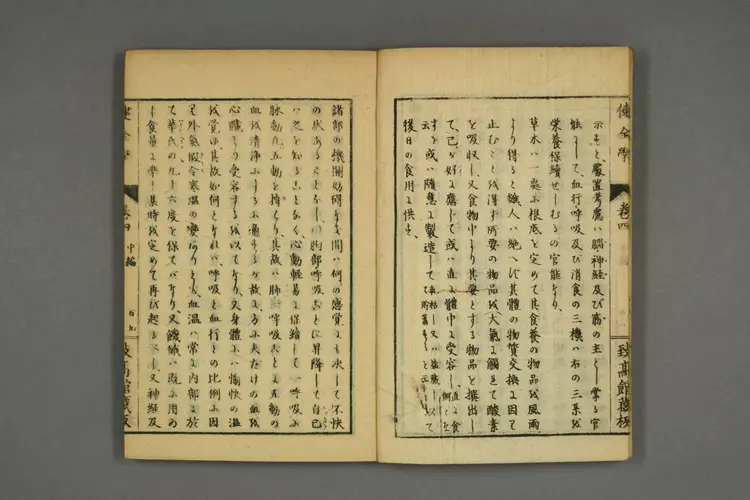 健全學
卷四
致高館藏板
示すと、處置考慮ハ腦神經及び筋の主として掌る官
能にして、血行呼吸及び消食の三機ハ右の三系を
榮養保續せしむるの官能なり、
草木ハ一處に根底を定めて其食養の物品を風雨
より得ると雖人ハ絶へず其體の物質交換に因て
止むことを得ず所要の物品を大氣に觸きて酸素
を吸収し、又食物中より其要とする物品を撰出し
て、己が好に應じて或ハ直に體中に受容し、
すを或ハ隨意に製造して
云
後日の食用に供す、
諸部の機關妨碍なき間ハ何の感覺も決して不快
の状あることなし、胸部呼吸ごとに昇降して自己
ハ之を知ることなく、心動軽易に保續して一呼吸に
脉動凡五動を搏く、其故ハ肺一呼吸ごとに五動の
血を清浄にするに適するが故に、方に夫だけの血を
心臓より受容するを以てなり、又身體にハ愉快の温
を覺ゆ、其故如何となれハ、呼吸と血行との比例に因
て外氣假令寒温の變ありとも血温ハ常に内部に於
て華氏の九十六度を保てバなり、又饑餓ハ既に用ゐ
し食量に準し其時を定めて再び起る、又神經及
健全學
卷四
中編
百九
致高館藏板